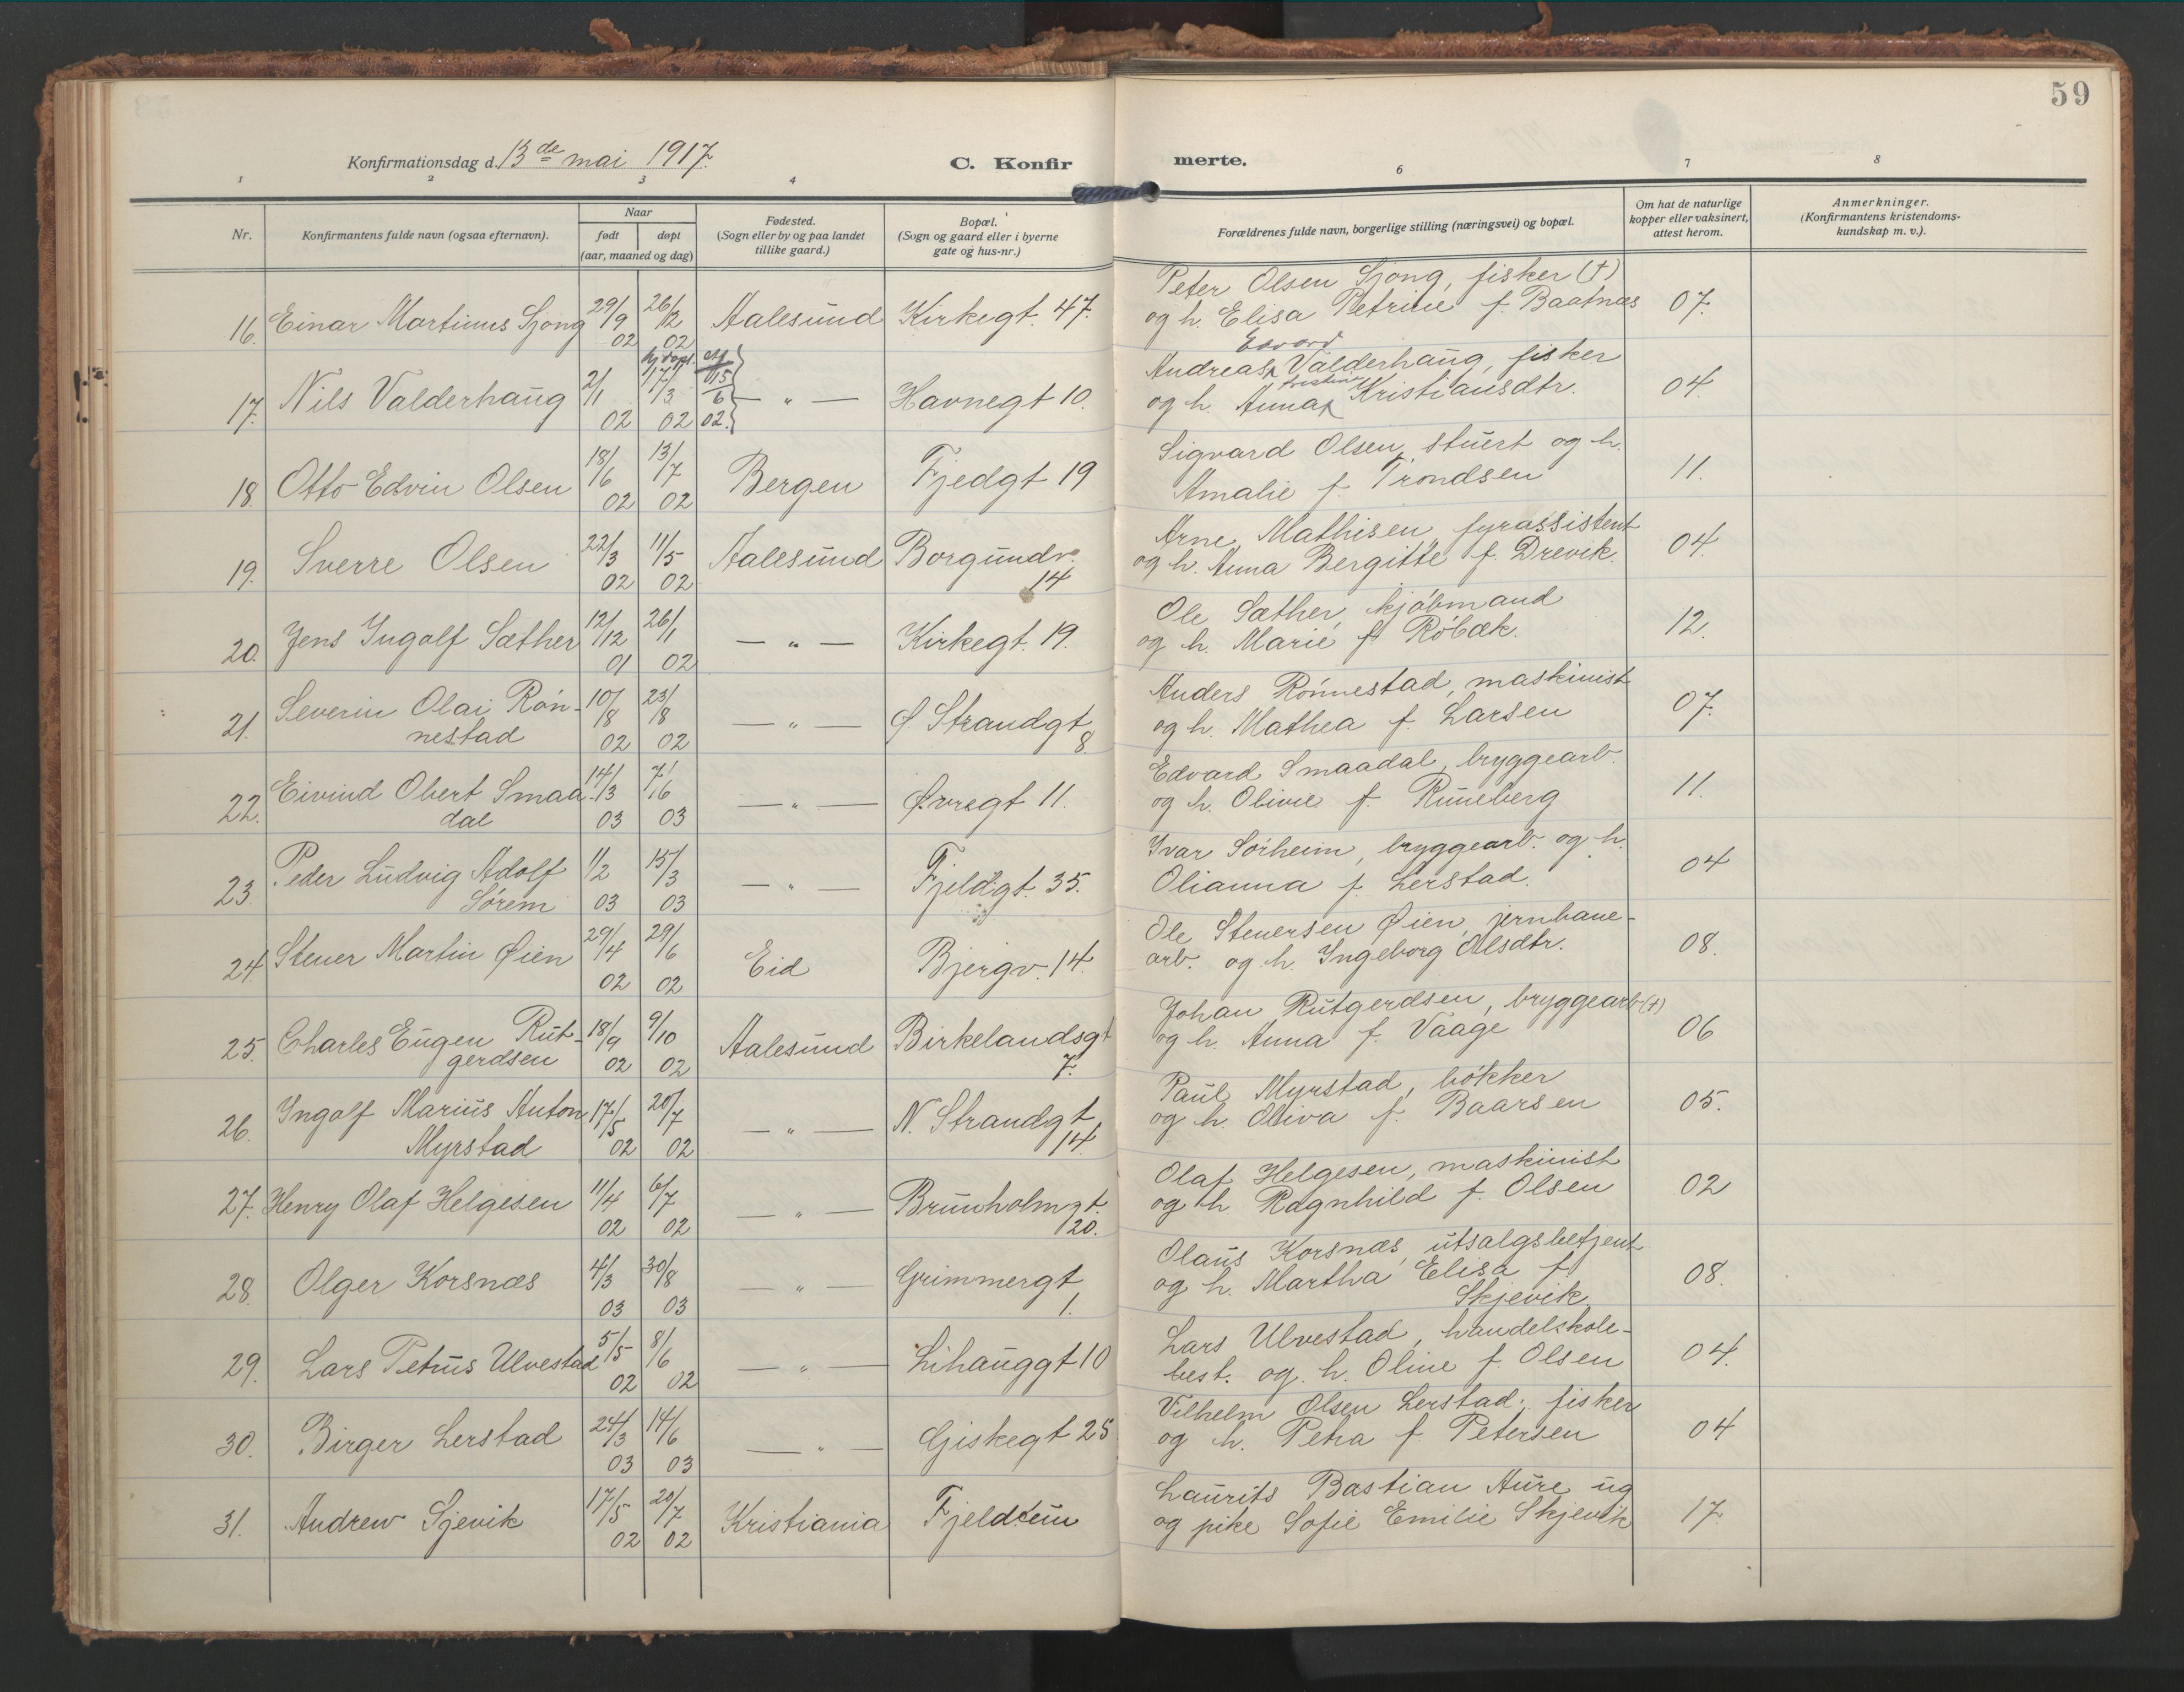 59
Konfirmationsdag d. 13de mai 1917.
C. Konfir merte.
1 2 3 4 6 7 8
Nr.
Konfirmantens fulde navn (ogsaa efternavn).
Naar
født døpt
(aar, maaned og dag)
Fødested.
(Sogn eller by og paa landet
tillike gaard.)
Bopæl.
(Sogn og gaard eller i byerne
gate og hus-nr.)
Forældrenes fulde navn, borgerlige stilling (næringsvei) og bopæl.
Om hat de naturlige
kopper eller vaksinert,
attest herom.
Anmerkninger.
(Konfirmantens kristendoms-
kundskap m. v.).
16. Einar Martinus Sjong 29/9 02 26/12 02 Aalesund Kirkegt. 47.
Peter Olsen Sjong, fisker (†)
og h. Elisa Petrine f. Baatnæs 07.
17. Nils Valderhaug 2/1 02 hj.døpt. 17/3 02 15/6 02. — " — Havnegt 10.
Edvard
Andreas Valderhaug, fisker
og h. Anna Kristiansdtr. 04.
18. Otto Edvin Olsen 18/6 02 13/7 02 Bergen Fjedgt 19
Sigvard Olsen, stuert og h.
Amalie f. Trondsen 11.
19. Sverre Olsen 22/3 02 11/5 02 Aalesund Borgundv.
14
Arne Mathisen, fyrassistent
og h. Anna Bergitte f. Drevik. 04.
20. Jens Ingolf Sæther 12/12 01 26/1 02 — " — Kirkegt. 19.
Ole Sæther, kjøbmand
og h. Marie f. Røbæk. 12.
21. Severin Olai Røn-
nestad 10/8 02 23/8 02 — " — Ø Strandgt
8.
Anders Rønnestad, maskinist
og h. Mathea f. Larsen 07.
22. Eivind Obert Smaa
dal 14/3 03 7/6 03 — " — Øvregt 11.
Edvard Smaadal, bryggearb.
og h. Olivie f. Runeberg 11.
23. Peder Ludvig Adolf
Sørem 1/2 03 15/3 03 — " — Fjeldgt. 35.
Ivar Sørheim, bryggearb. og h.
Olianna f. Lerstad. 04
24. Stener Martin Øien 29/4 02 29/6 02 Eid Bjergv. 14.
Ole Stenersen Øien, jernbane-
arb. og h. Ingeborg Olsdtr. 08.
25. Charles Eugen Rut-
gerdsen 18/9 02 9/10 02 Aalesund Birkelandsgt
7.
Johan Rutgerdsen, bryggearb (†)
og h. Anna f. Vaage 06
26. Ingolf Marius Anton
Myrstad 17/5 02 20/7 02 — " — N. Strandgt
14.
Paul Myrstad, bøkker
og h. Oliva f. Baarsen 05.
27. Henry Olaf Helgesen 11/4 02 6/7 02 — " — Brunholmgt.
20.
Olaf Helgesen, maskinist
og h. Ragnhild f. Olsen 02
28. Olger Korsnæs 4/3 03 30/8 03 — " — Grimmergt
1.
Olaus Korsnæs, utsalgsbetjent
og h. Martha Elisa f.
Skjevik 08.
29. Lars Petrus Ulvestad 5/5 02 8/6 02 — " — Lihauggt 10
Lars Ulvestad, handelskole-
best. og h. Oline f. Olsen 04.
30. Birger Lerstad 24/3 03 14/6 03 — " — Giskegt 25
Vilhelm Olsen Lerstad, fisker
og h. Petra f. Petersen 04
31. Andrew Sjevik 17/5 02 20/7 02 Kristiania Fjeldheim
Laurits Bastian Aure ug
og pike Sofie Emilie Skjevik 17.